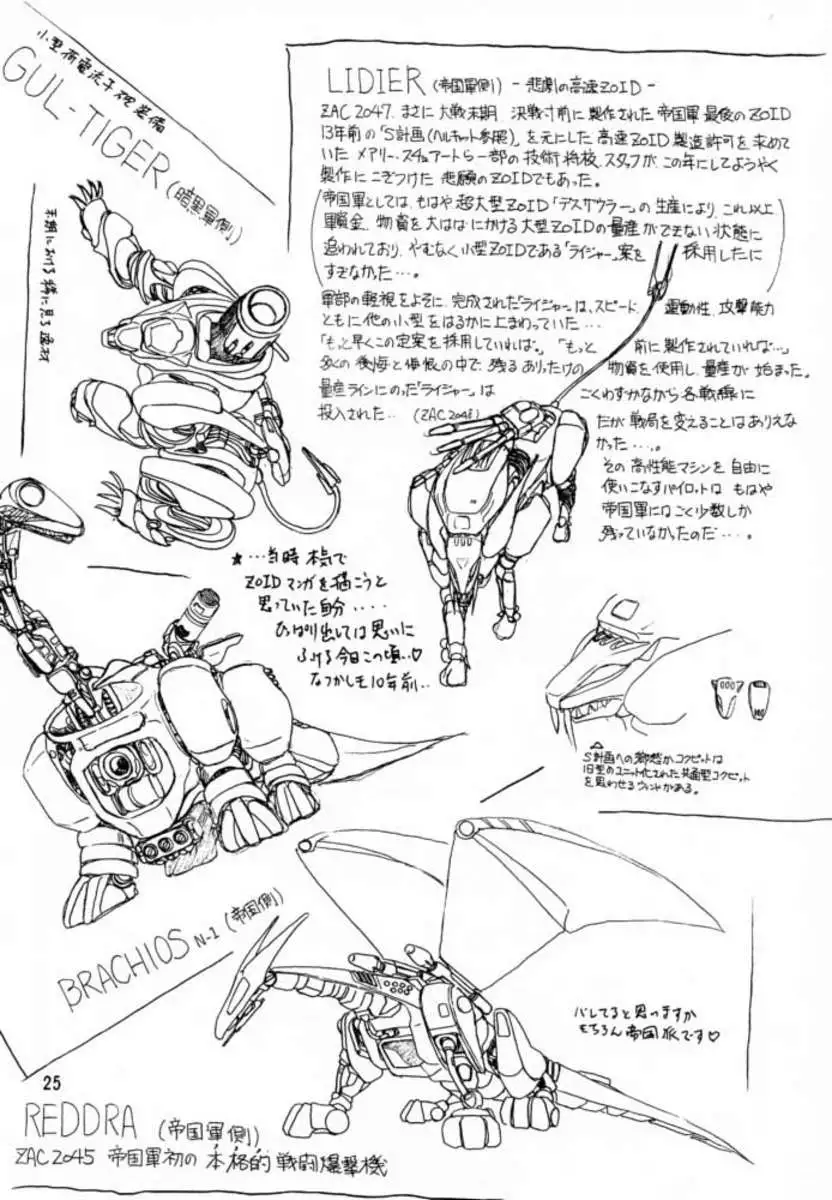 小型荷電流子砲装備
GUL-TIGER (暗黒軍側)
LIDIER (帝国軍側) - 悲劇の高速ZOID -
ZAC 2047. まさに大戦末期 決戦寸前に製作された帝国軍最後のZOID
13年前の「S計画(ヘルキャット参照)」を元にした高速ZOID製造許可を求めて
いた メアリー・スチュアートら一部の技術将校、スタッフが、この年にしてようやく
製作にこぎつけた 悲願のZOIDでもあった。
(帝国軍としては、もはや超大型ZOID「デスザウラー」の生産により、これ以上
軍資金、物資を大はばにかける大型ZOIDの量産ができない状態に
追われており、やむなく小型ZOIDである「ライジャー」案を 採用したに
すぎなかった…。)
軍部の軽視をよそに、完成された「ライジャー」は、スピード、運動性、攻撃能力
ともに他の小型をはるかに上まわっていた…
「もっと早くこの定案を採用していれば。」「もっと 前に製作されていれば…」
多くの後悔と悔恨の中で 残るありったけの 物資を使用し、量産が始まった。
量産ラインにのった「ライジャー」は ごくわずかながら各戦線に
投入された‥ (ZAC 2048)
だが戦局を変えることはありえな
かった…。
その高性能マシンを自由に
使いこなすパイロットは もはや
帝国軍にはごく少数しか
残っていなかったのだ…。
★…当時 本気で
ZOIDマンガを描こうと
思っていた自分‥‥
ひっぱり出しては思いに
ふける今日この頃‥♡
なつかしも10年前‥
S計画への郷愁か コクピットは
旧型のユニット化された共通型コクピット
を思わせるラインがある。
BRACHIOS N-1 (帝国側)
バレてると思いますが
もちろん帝国派です♡
25
REDDRA (帝国軍側)
ZAC 2045 帝国軍初の 本格的戦闘爆撃機